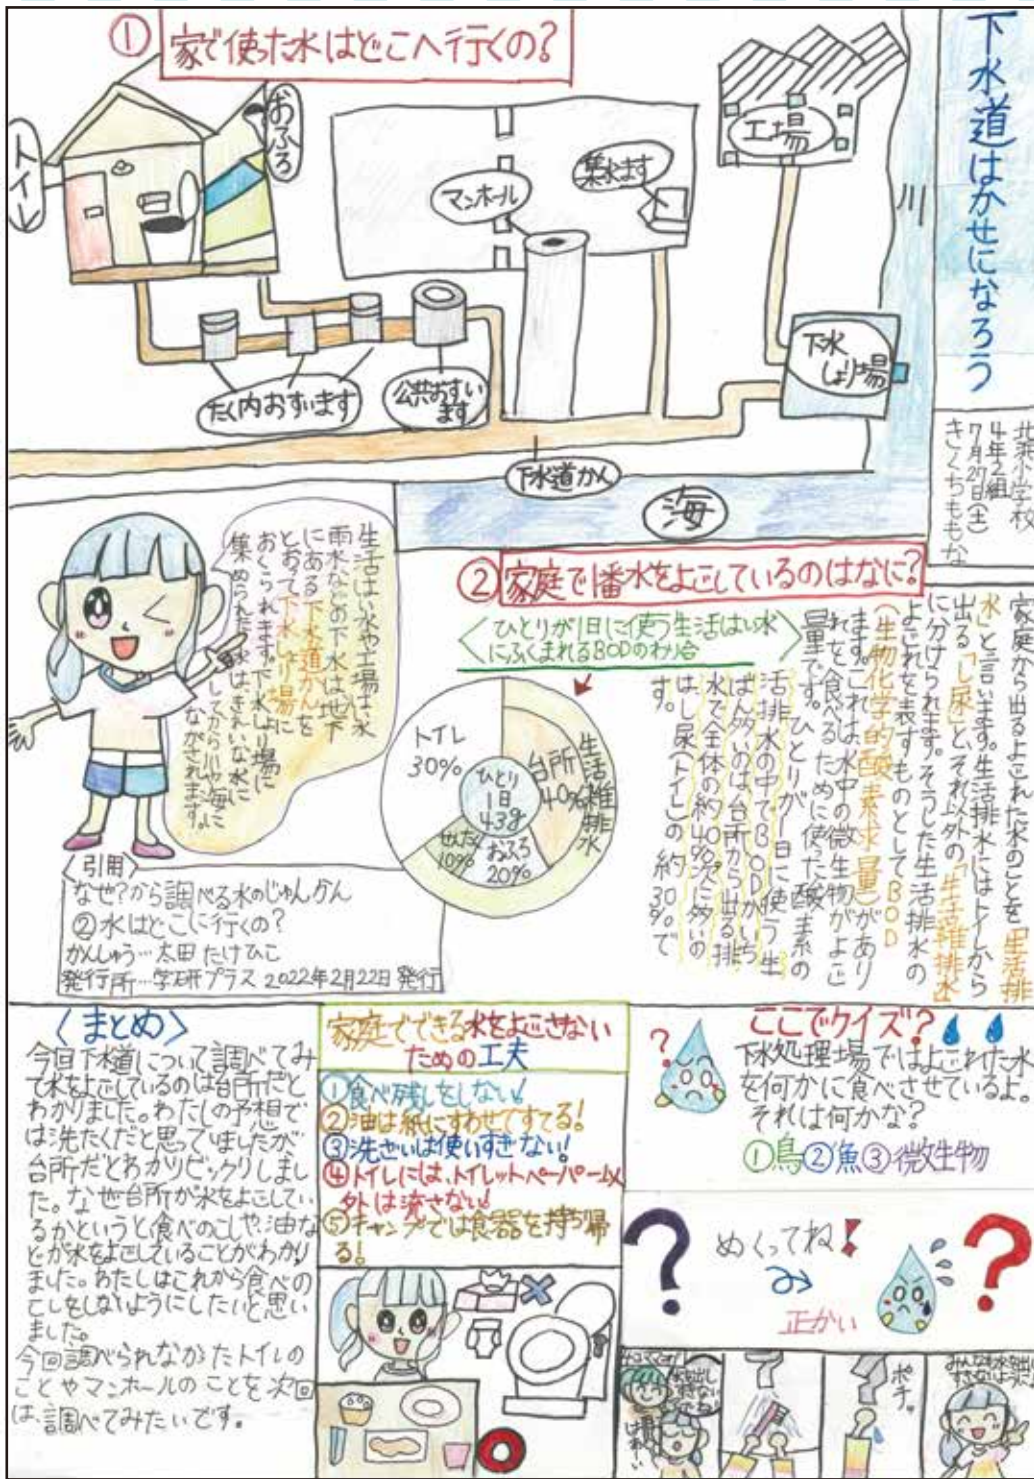 下水道はかせになろう
北浜小学校
4年2組
7月27日(土)
きくちももな
① 家で使った水はどこへ行くの?
トイレ
おふろ
マンホール
集水ます
工場
川
たく内おすいます
公共おすい
ます
下水
しょり場
下水道かん
海
生活はい水や工場はい水
雨水などの下水は地下
にある下水道かんを
とおって下水しょり場に
おくられます。下水しょり場に
集められた水は、きれいな水に
してから川や海に
ながされます。
〈引用〉
なぜ?から調べる水のじゅんかん
②水はどこに行くの?
かんしゅう…太田 たけひこ
発行所…学研プラス 2022年2月22日 発行
② 家庭で1番水をよごしているのはなに?
〈ひとりが1日に使う生活はい水
にふくまれるBODのわり合〉
トイレ
30%
台所
40%
生活雑排水
ひとり
1日
43g
せんたく
10%
おふろ
20%
家庭から出るよごれた水のことを「生活排
水」と言います。生活排水にはトイレから
出る「し尿」と、それ以外の「生活雑排水」
に分けられます。そうした生活排水の
よごれを表すものとしてBOD
(生物化学的酸素求量)があり
ます。これは、水中の微生物がよご
れを食べるために使った酸素の
量です。ひとりが一日に使う生
活排水の中でBODがいち
ばん多いのは台所から出る排
水で全体の約40%次に多いの
は、し尿(トイレ)の約30%で
す。
〈まとめ〉
今回下水道について調べてみ
て水をよごしているのは台所だと
わかりました。わたしの予想で
は洗たくだと思っていましたが
台所だとわかりビックリしまし
た。なぜ台所が水をよごしてい
るかというと食べのこしや、油な
どが水をよごしていることがわかり
ました。わたしはこれから食べの
こしをしないようにしたいと思い
ました。
今回調べられなかったトイレの
ことやマンホールのことを次回
は、調べてみたいです。
家庭でできる水をよごさない
ための工夫
①食べ残しをしない!
②油は紙にすわせてすてる!
③洗ざいは使いすぎない!
④トイレには、トイレットペーパー以
外は流さない!
⑤キャンプでは食器を持ち帰
る!
ここでクイズ?
下水処理場ではよごれた水
を何かに食べさせているよ。
それは何かな?
①鳥②魚③微生物
めくってね!
正かい
はぁーい
ポチ。